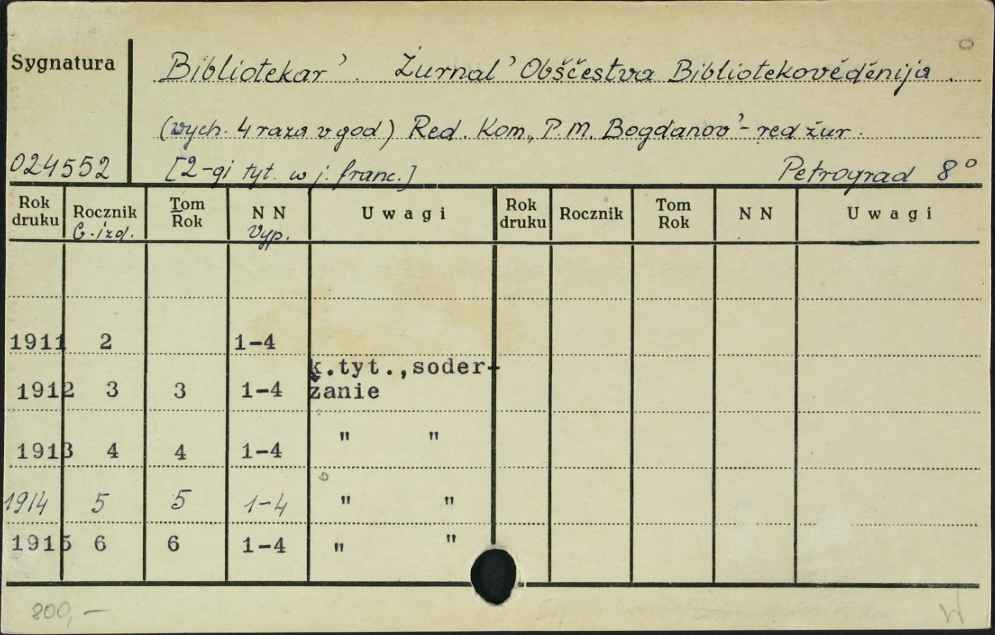 Sygnatura
Bibliotekar'. Žurnal' Obščestva Bibliotekověděnija.
(vych. 4 raza v god) Red. Kom., P.M. Bogdanov' - red žur.
024552 [2-gi tyt. w j. franc.] Petrograd 8°
Rok druku Rocznik G.izd. Tom Rok N N Vyp. Uwagi Rok druku Rocznik Tom Rok N N Uwagi
1911 2 1-4
k.tyt.,soder-
1912 3 3 1-4 žanie
1913 4 4 1-4 " "
1914 5 5 1-4 " "
1915 6 6 1-4 " "
800,-